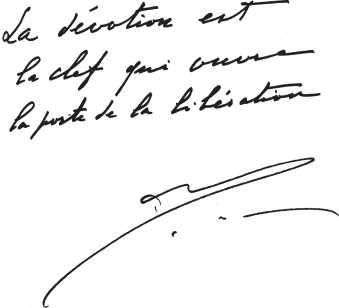 La dévotion est
la clef qui ouvre
la porte de la libération